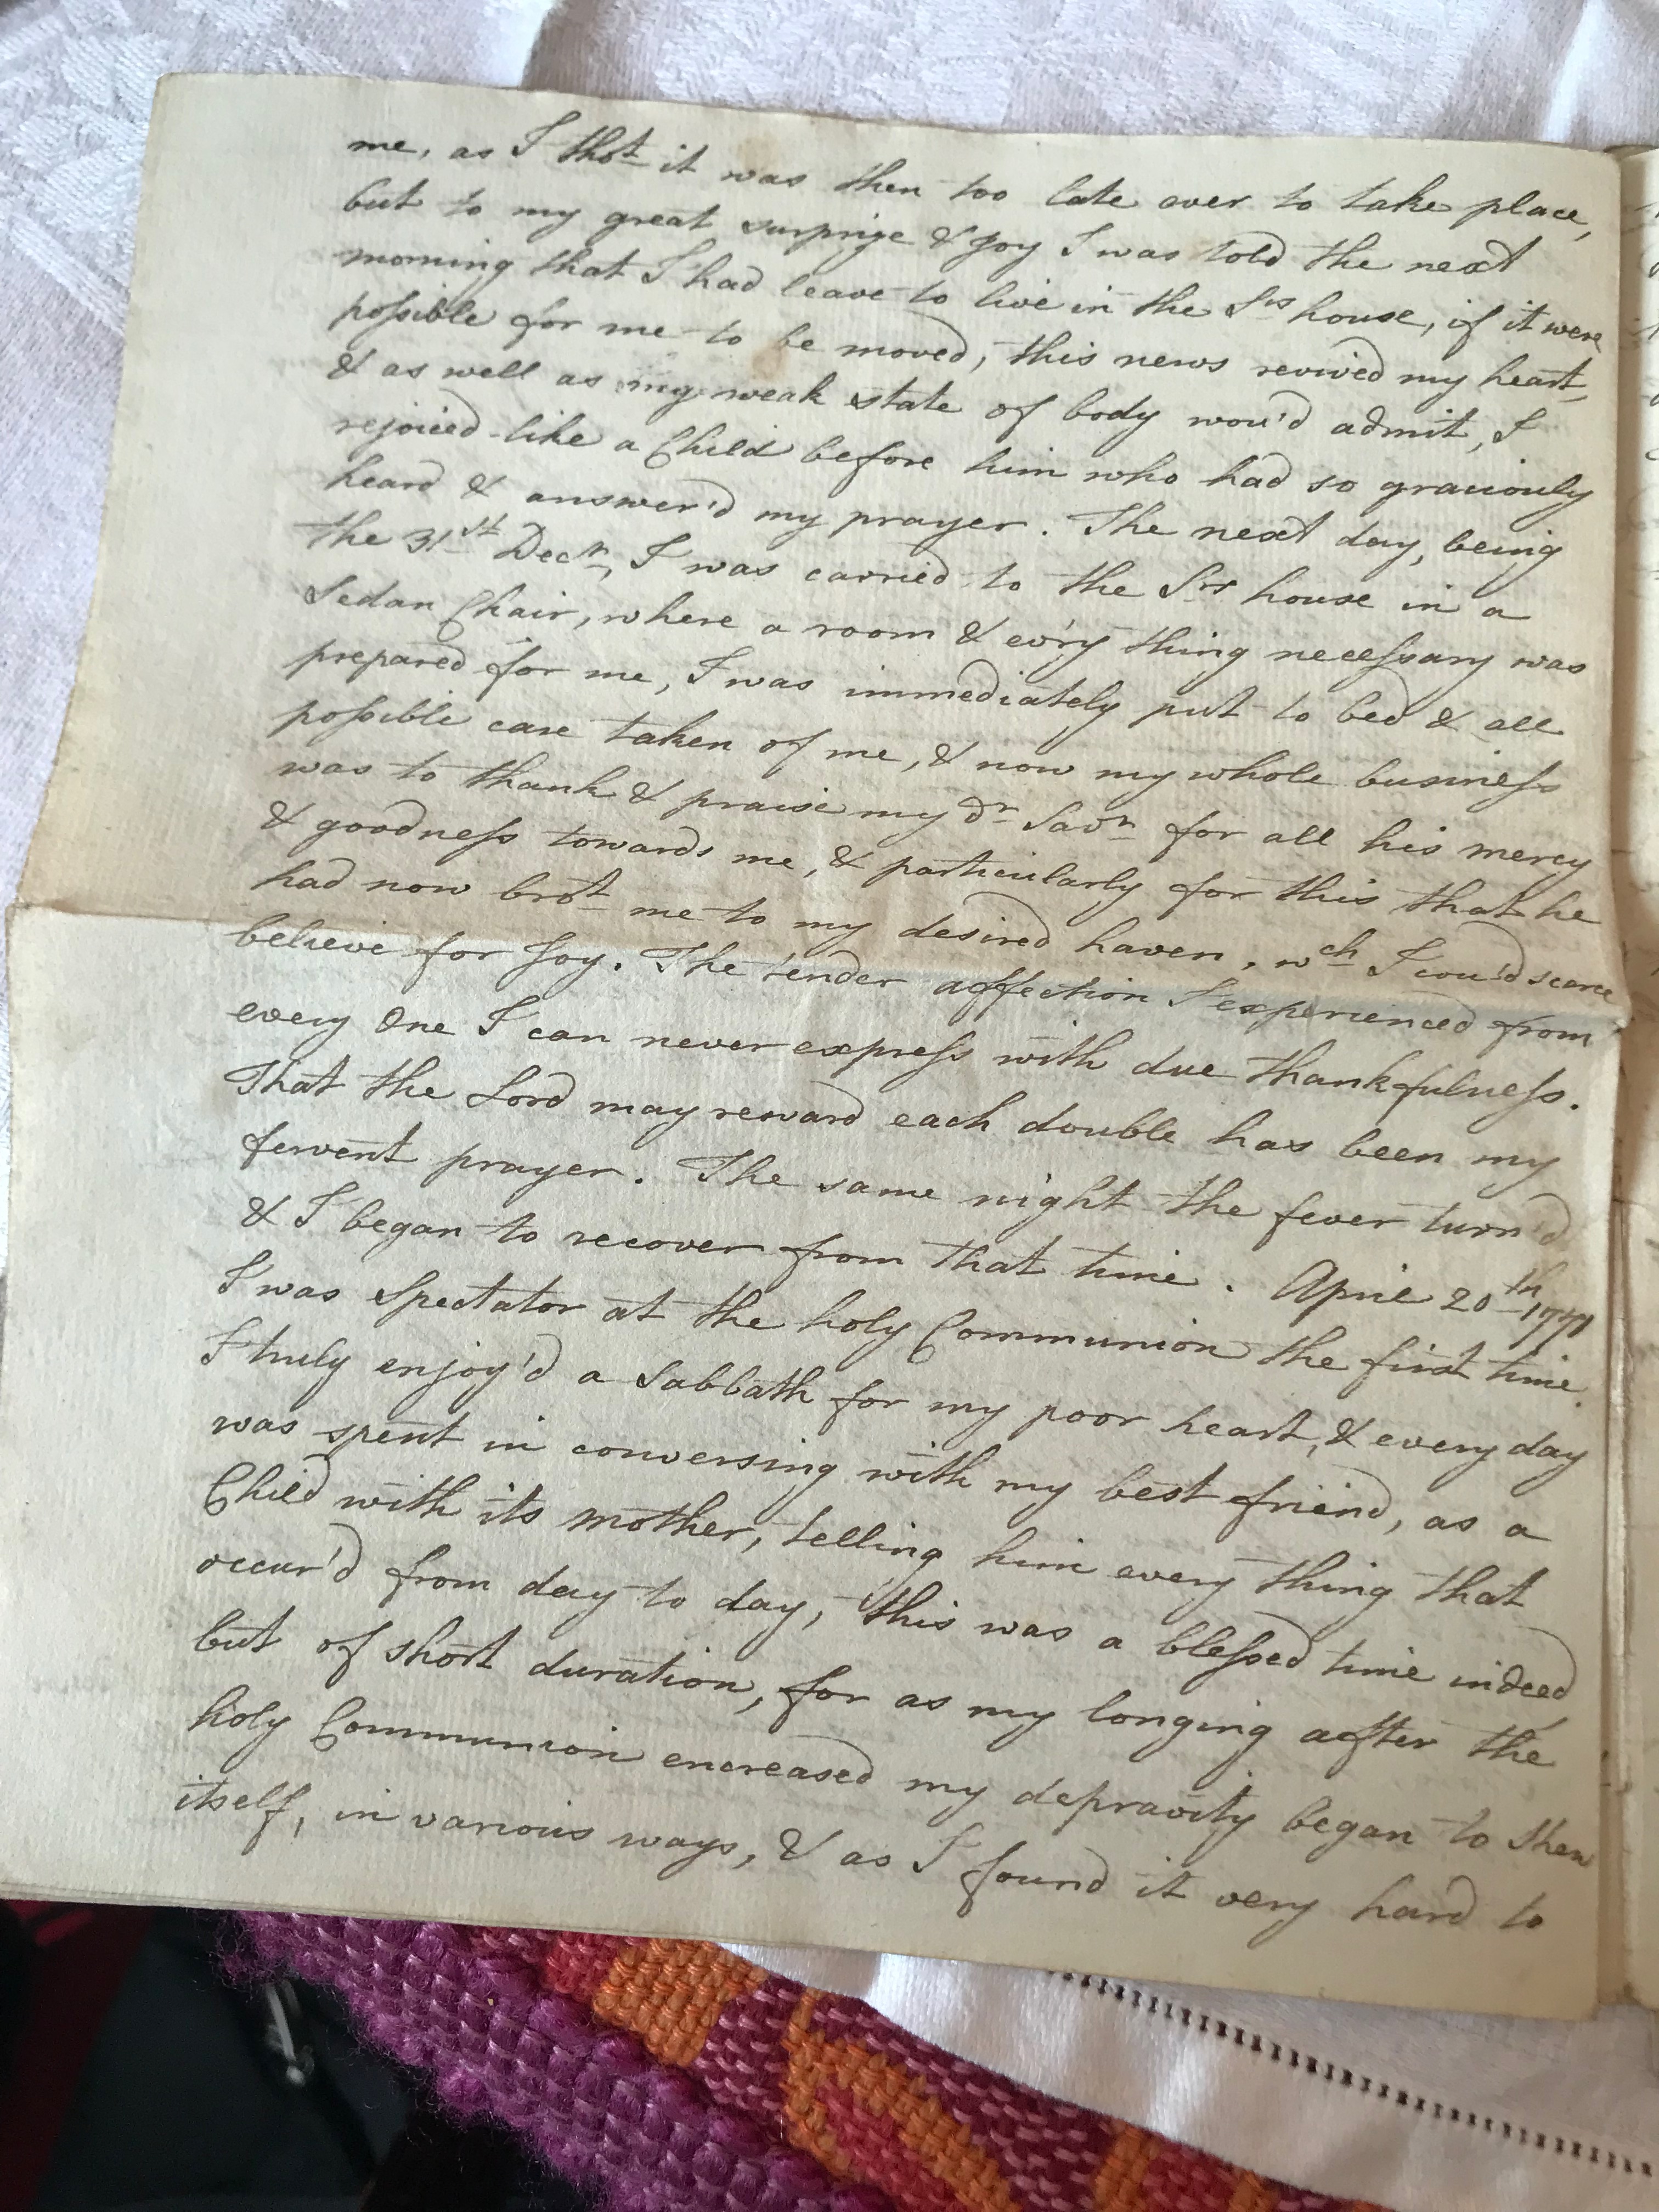 me, as I thot it was then too late ever to take place,
but to my great surprize & Joy I was told the next
morning that I had leave to live in the Srs house, if it were
possible for me to be moved, this news revived my heart,
& as well as my weak state of body wou'd admit, I
rejoiced like a Child before him who had so graciously
heard & answer'd my prayer. The next day, being
the 31st Decr, I was carried to the Srs house in a
Sedan Chair, where a room & ev'ry thing necessary was
prepared for me, I was immediately put to bed & all
possible care taken of me, & now my whole business
was to thank & praise my dr Savr for all his mercy
& goodness towards me, & particularly for this that he
had now brot me to my desired haven, wch I cou'd scarce
believe for Joy. The tender affection I experienced from
every One I can never express with due thankfulness.
That the Lord may reward each double has been my
fervent prayer. The same night the fever turn'd
& I began to recover from that time. April 20th
I was Spectator at the holy Communion the first time
I truly enjoy'd a Sabbath for my poor heart, & every day
was spent in conversing with my best friend, as a
Child with its mother, telling him every thing that
occur'd from day to day, this was a blessed time indeed
but of short duration, for as my longing after the
holy Communion encreased my depravity began to shew
itself, in various ways, & as I found it very hard to